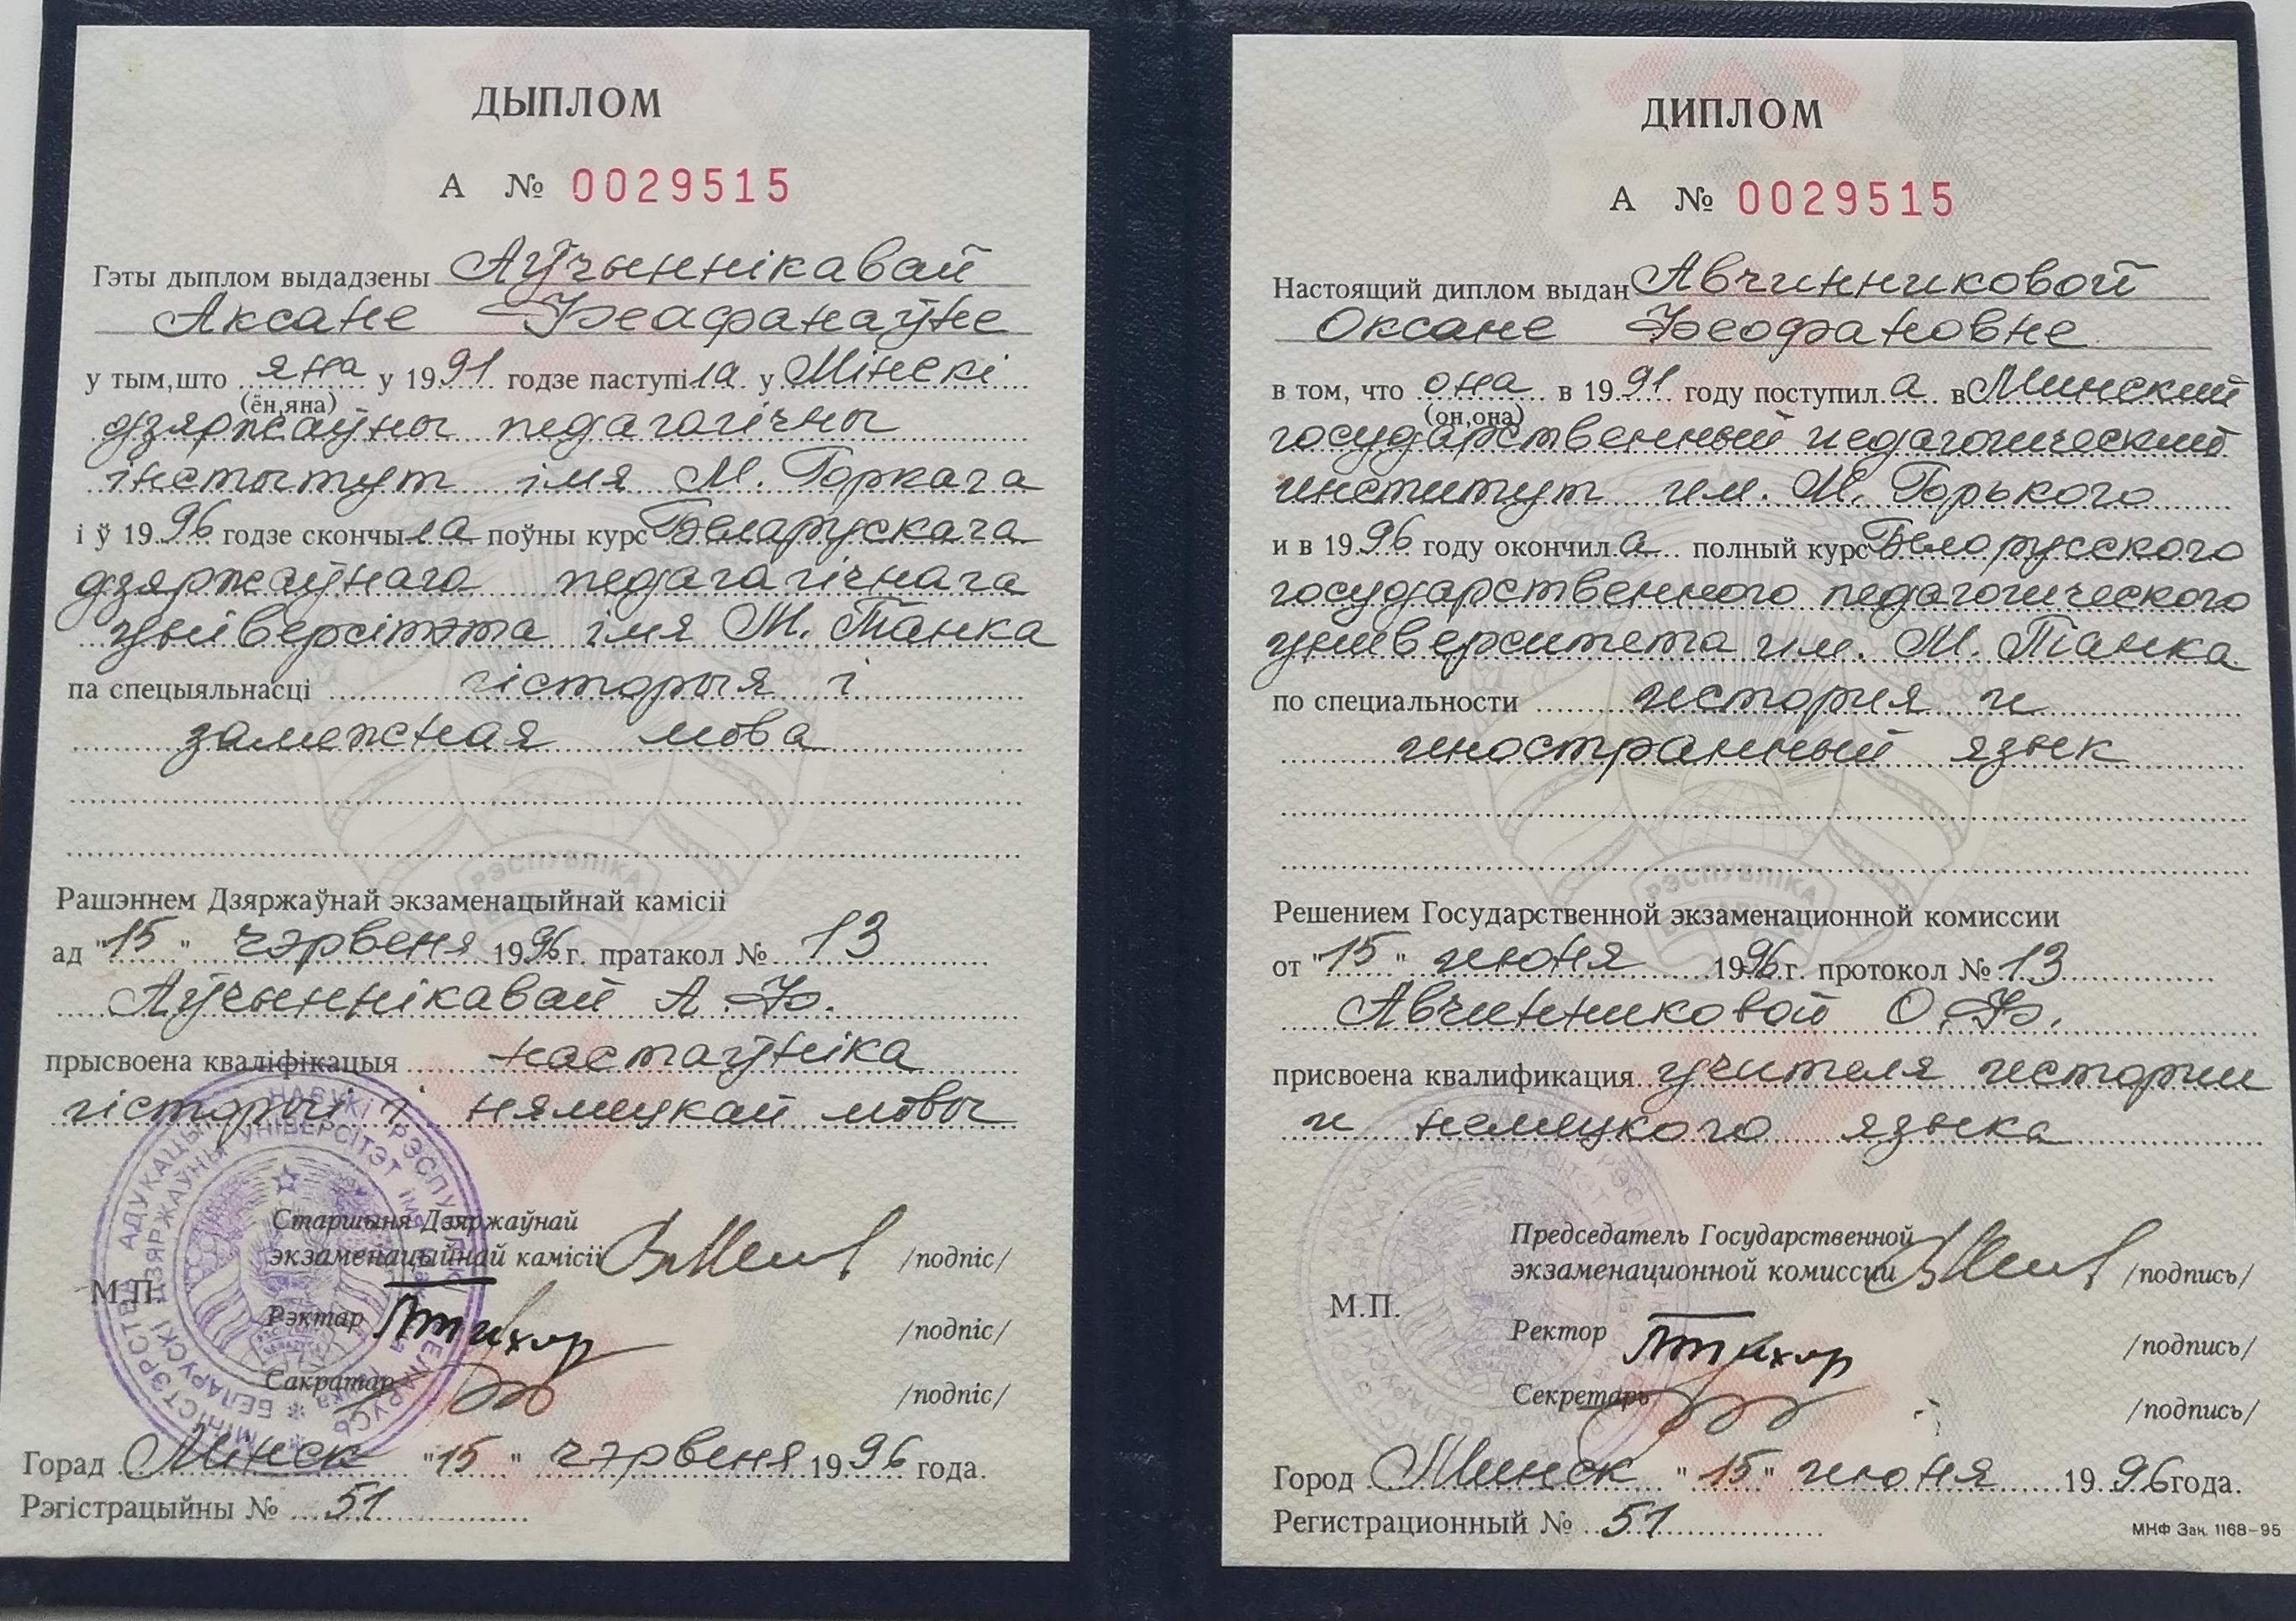 ДЫПЛОМ
А № 0029515
Гэты дыплом выдадзены Аўчыннікавай
Аксане Феафанаўне
у тым,што яна у 1991 годзе паступіла у Мінскі
(ён,яна)
дзяржаўны педагагічны
інстытут імя М. Горкага
і ў 1996 годзе скончыла поўны курс Беларускага
дзяржаўнага педагагічнага
універсітэта імя М. Танка
па спецыяльнасці гісторыя і
замежная мова
РЭСПУБЛІКА
Рашэннем Дзяржаўнай экзаменацыйнай камісіі
ад "15" чэрвеня 1996 г. пратакол № 13
Аўчыннікавай А.Ф.
прысвоена кваліфікацыя настаўніка
гісторыі і нямецкай мовы
Старшыня Дзяржаўнай
экзаменацыйнай камісіі /подпіс/
М.П.
Рэктар /подпіс/
Сакратар /подпіс/
Горад Мінск "15" чэрвеня 1996 года.
Рэгістрацыйны № 51
ДИПЛОМ
А № 0029515
Настоящий диплом выдан Авчинниковой
Оксане Феофановне
в том, что она в 1991 году поступила в Минский
(он,она)
государственный педагогический
институт им. М. Горького
и в 1996 году окончила полный курс Белорусского
государственного педагогического
университета им. М. Танка
по специальности история и
иностранный язык
РЭСПУБЛІКА
Решением Государственной экзаменационной комиссии
от "15" июня 1996 г. протокол № 13
Авчинниковой О.Ф.
присвоена квалификация учителя истории
и немецкого языка
Председатель Государственной
экзаменационной комиссии /подпись/
М.П.
Ректор /подпись/
Секретарь /подпись/
Город Минск "15" июня 1996 года.
Регистрационный № 51
МНФ Зак. 1168-95